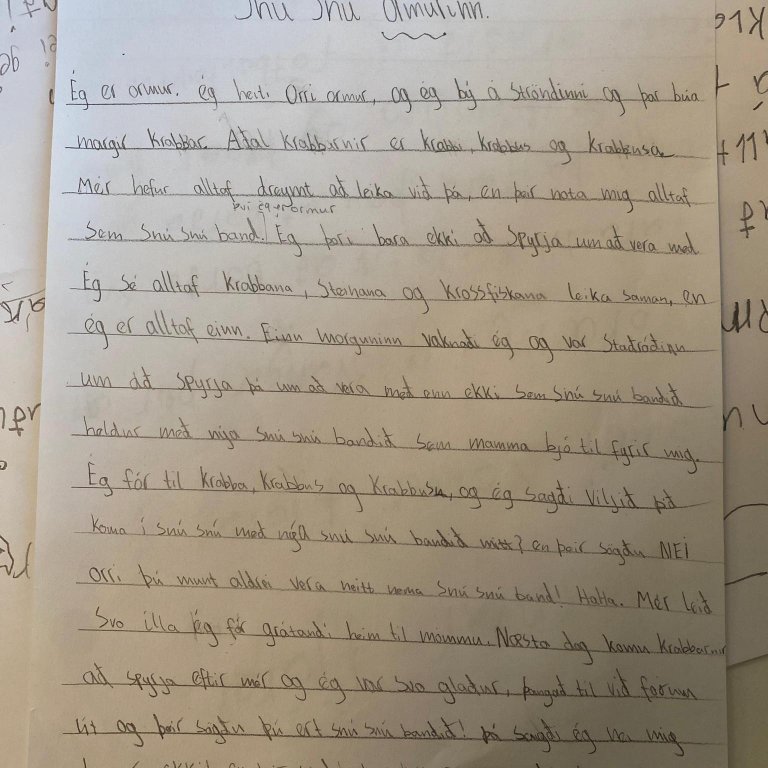 Snú Snú ömulinn.
Ég er ormur. ég heiti Orri ormur, og ég bý á Ströndinni og þar búa
margir Krabbar. Aðal Krabbarnir er Krabbi, Krabbus og Krabbusa
Mér hefur alltaf dreymt að leika við þá, en þeir nota mig alltaf
því ég er ormur
Sem snú snú band! Ég þori bara ekki að spyrja um að vera með
Ég sé alltaf Krabbana, Steinana og Krossfiskana leika saman, en
ég er alltaf einn. Einn morguninn vaknaði ég og var Staðráðinn
um að spyrja þá um að vera með enn ekki sem snú snú bandið
heldur með nýja snú snú bandið sem mamma bjó til fyrir mig.
Ég fór til Krabba, Krabbus og Krabbusu, og ég sagði Viljið þið
Koma í snú snú með nýja snú snú bandið mitt? en þeir sögðu NEI
Orri þú munt aldrei vera neitt nema Snú snú band! HaHa. Mér leið
Svo illa ég fór grátandi heim til mömmu. Næsta dag komu Krabbarnir
að spyrja eftir mér og ég var svo glaður, þangað til við forum
út og þeir sögðu þú ert snú snú bandið! þá sagði ég mig